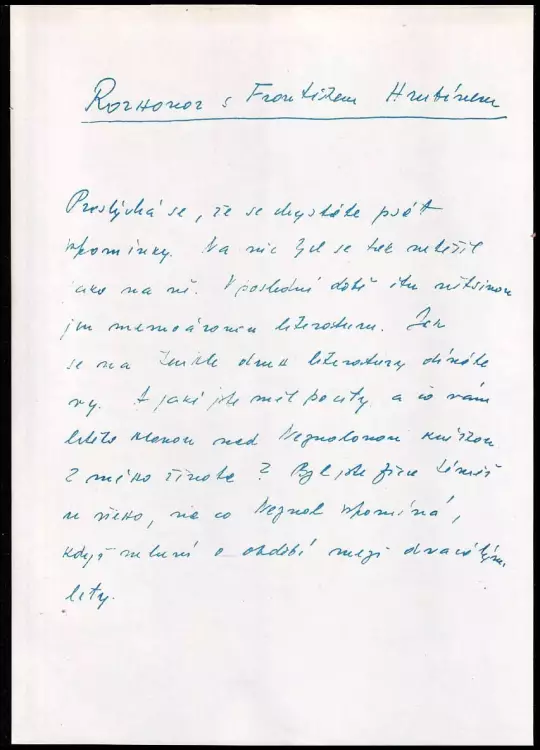 Rozhovor s Františkem Hrubínem
Proslýchá se, že se chystáte psát
vpomínky. Na nic bych se tak netěšil
jako na ně. V poslední době čtu většinou
jen memoárovou literaturu. Jak
se na tenhle druh literatury díváte
vy. A jaké jste měl pocity a co vám
letělo hlavou nad Nezvalovou knížkou
Z mého života? Byl jste přece téměř
u všeho, na co Nezval vpomíná,
když mluví o období mezi dvacátými
lety.